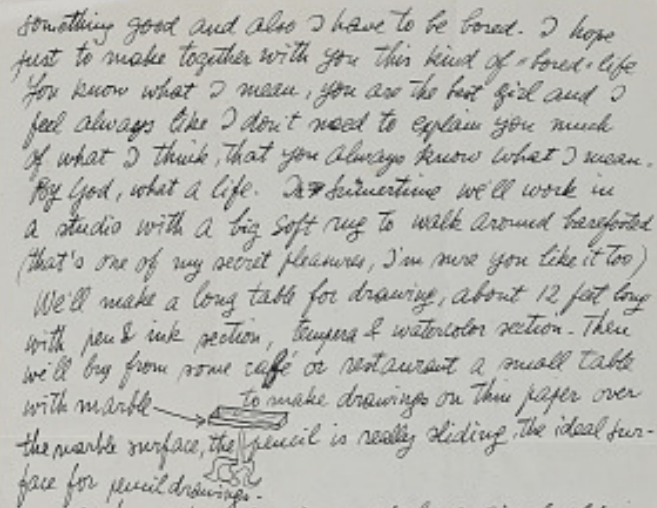 something good and also I have to be bored. I hope
just to make together with you this kind of "bored" life
You know what I mean, you are the best girl and I
feel always like I don't need to explain you much
of what I think, that you always know what I mean.
By God, what a life. In summertime we'll work in
a studio with a big soft rug to walk around barefooted
(that's one of my secret pleasures, I'm sure you like it too)
We'll make a long table for drawing, about 12 feet long
with pen & ink section, tempera & watercolor section. Then
we'll buy from some café or restaurant a small table
with marble to make drawings on thin paper over
the marble surface, the pencil is really sliding, the ideal sur-
face for pencil drawings.